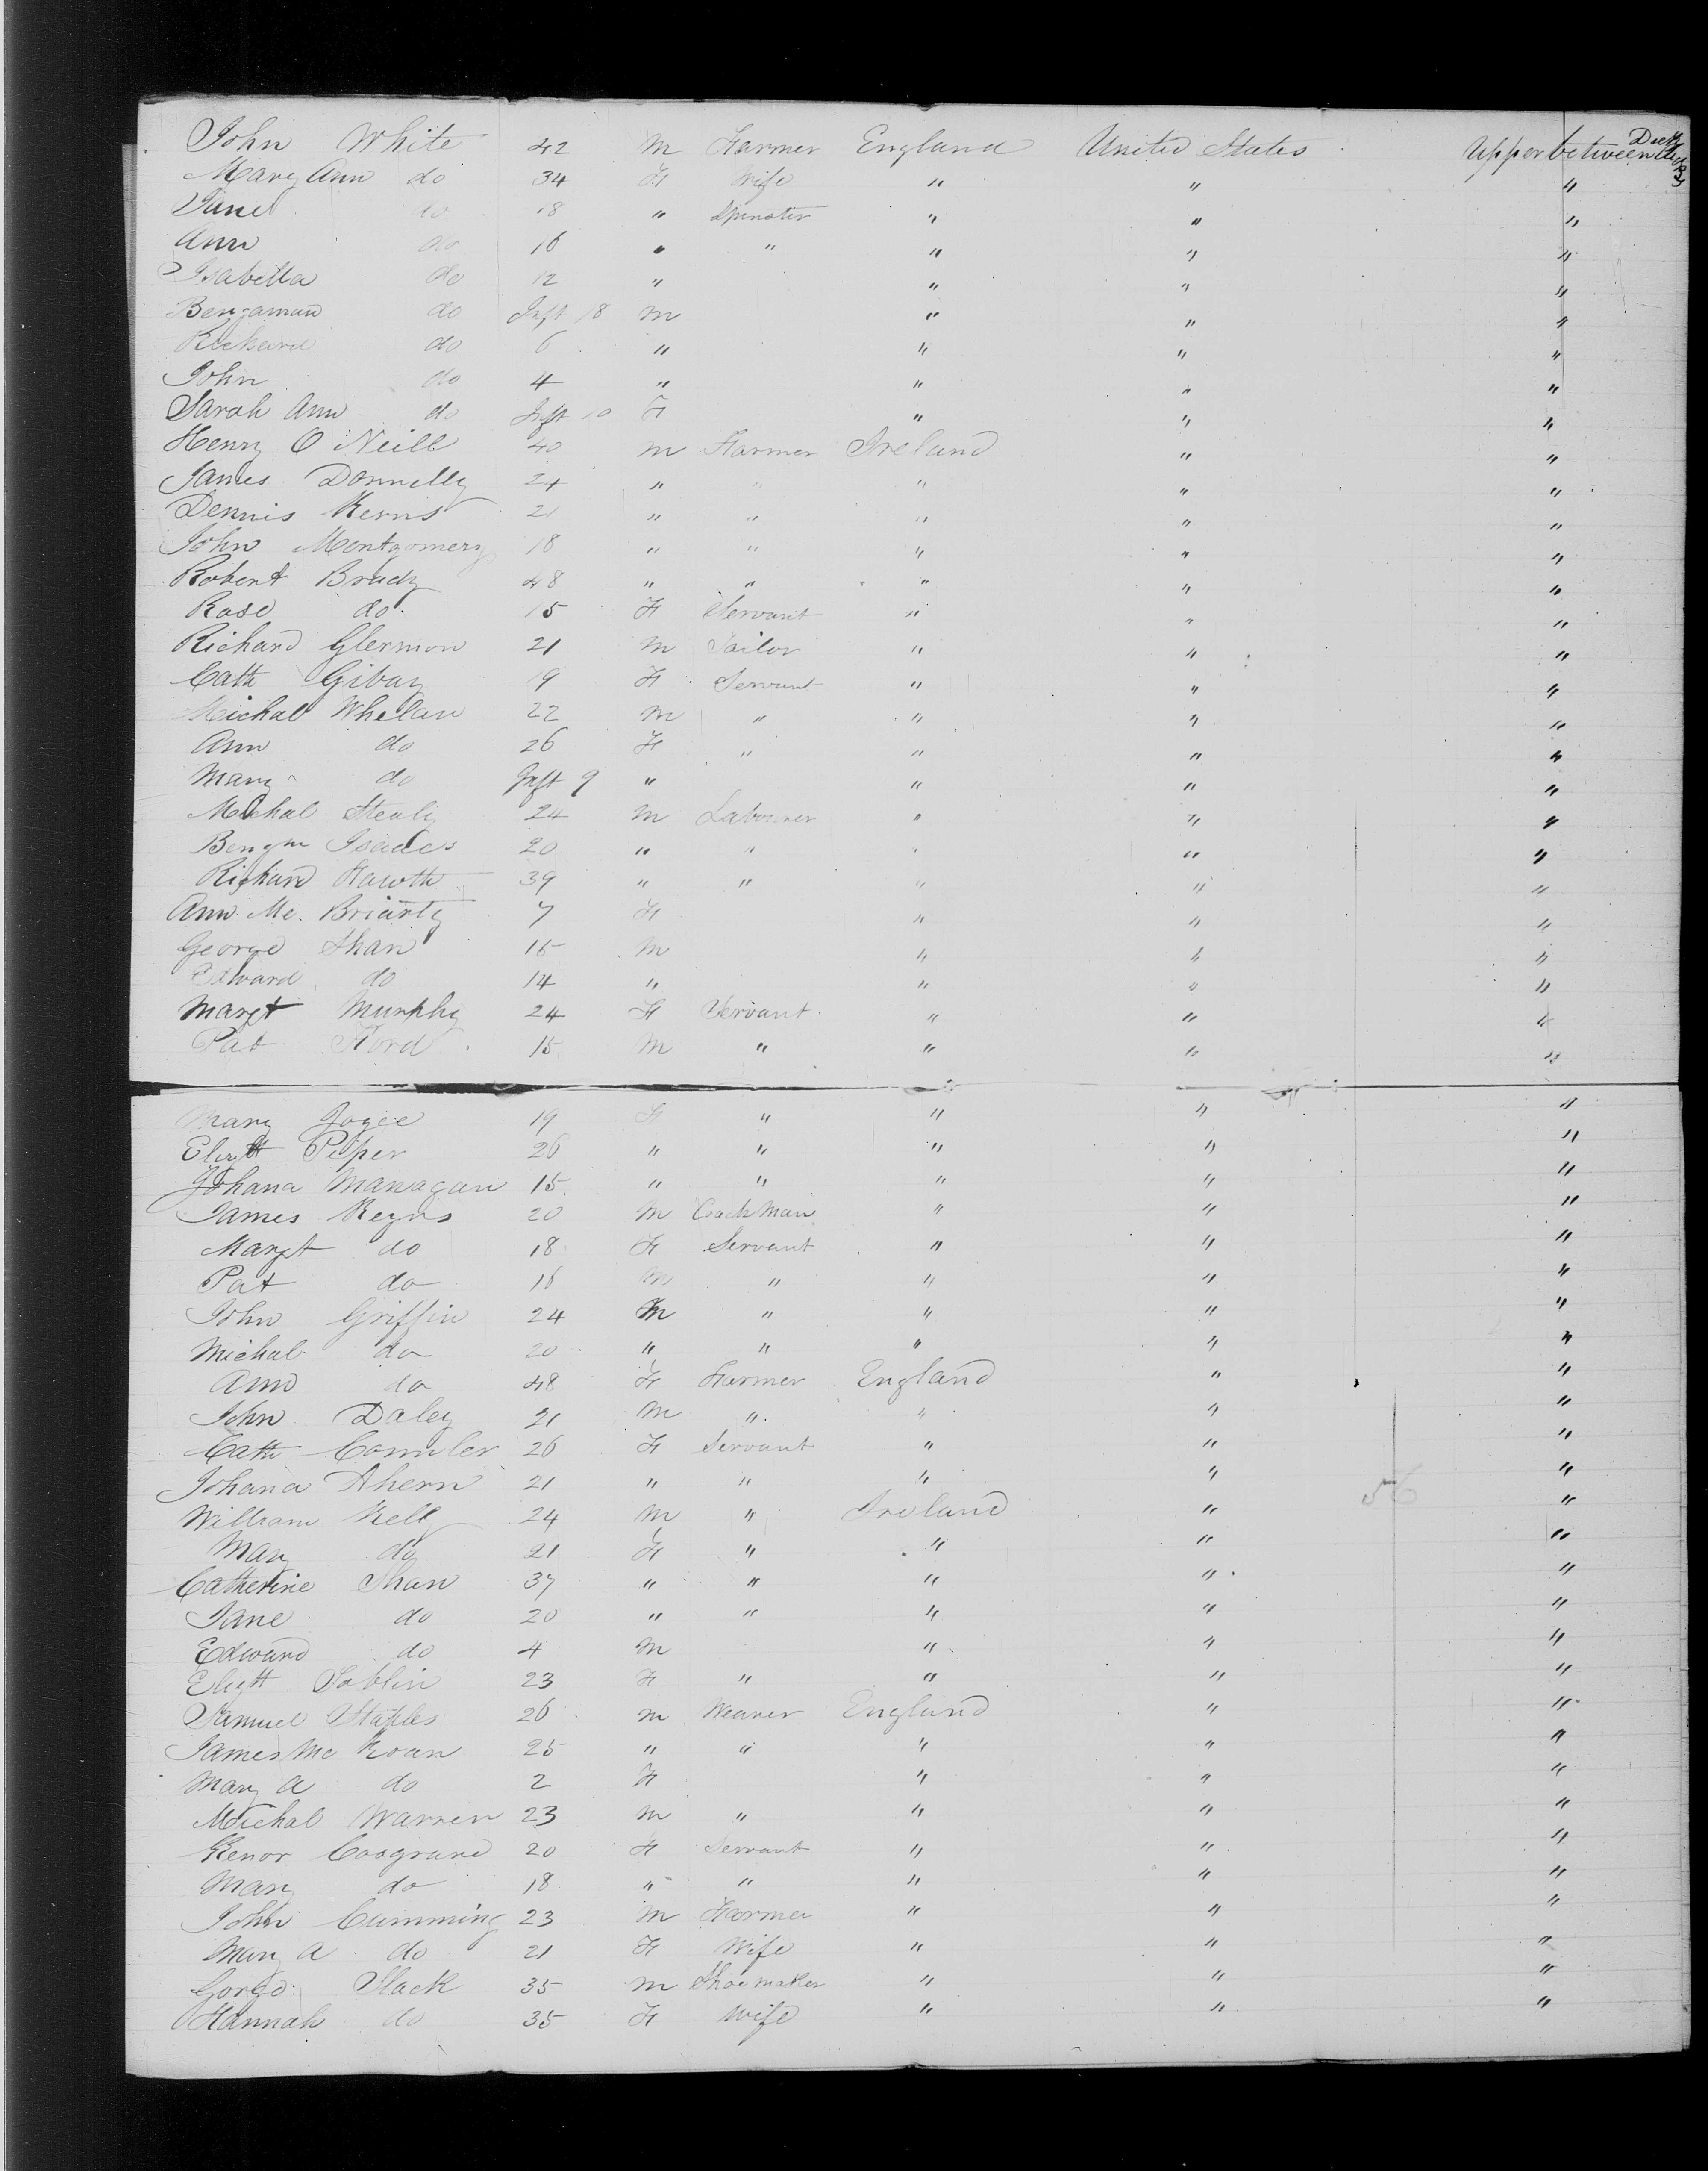 John White 42 M Farmer England United States Upper between Decks
Mary Ann do 34 F Wife " " "
Jane do 18 " Spinster " " "
Ann do 16 " " " " "
Isabella do 12 " " " "
Bengaman do Inft 18 M " " "
Richard do 6 " " " "
John do 4 " " " "
Sarah Ann do Inft 10 F " " "
Henry O Neill 40 M Farmer Ireland " "
James Donnelly 24 " " " " "
Dennis Kerns 21 " " " " "
John Montgomery 18 " " " " "
Robert Brady 48 " " " " "
Rose do 15 F Servant " " "
Richard Glermon 21 M Tailor " " "
Cath Gibay 19 F Servant " " "
Michal Whelan 22 M " " " "
Ann do 26 F " " " "
Mary do Inft 9 " " " "
Michal Healy 24 M Labourer " " "
Bengm 20 " " " " "
Richard Hawth 39 " " " " "
Ann Mc Briarty 7 F " " "
George Shan 15 M " " "
Edward do 14 " " " "
Margt Murphy 24 F Servant " " "
Pat Ford 15 M " " " "
Mary Joyce 19 F " " " "
Elizth Piper 26 " " " " "
Johana Manragan 15 " " " " "
James Keyns 20 M Coachman " " "
Margt do 18 F Servant " " "
Pat do 16 M " " " "
John Griffin 24 M " " " "
Michal do 20 " " " " "
Ann do 48 F Farmer England " "
John Daley 21 M " " " "
Cath 26 F Servant " " "
Johana Ahern 21 " " " " "
56
William Kell 24 M " Ireland " "
Mary do 21 F " " " "
Catherine Shan 37 " " " " "
Jane do 20 " " " " "
Edward do 4 M " " "
Elizth Soblin 23 F " " " "
Samuel Staples 26 M Weaver England " "
James Mc Koan 25 " " " " "
Mary A do 2 F " " "
Michal Warren 23 M " " " "
Cosgrave 20 F Servant " " "
Mary do 18 " " " " "
John Cumming 23 M Farmer " " "
Mary A do 21 F Wife " " "
Gorge Slack 35 M Shoemaker " " "
Hannah do 35 F Wife " " "